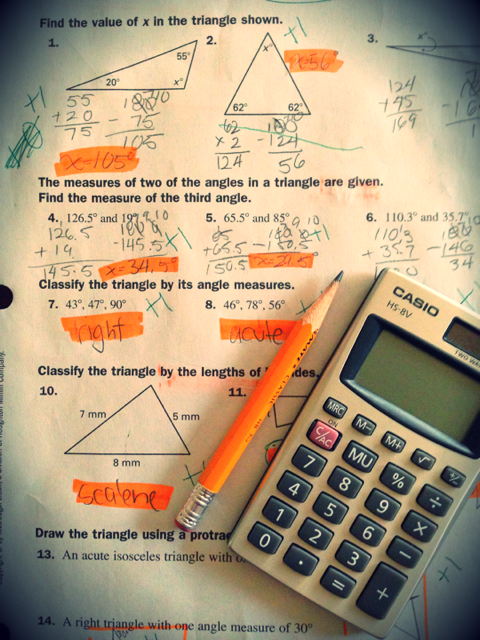 Find the value of x in the triangle shown.
1.
2.
3.
55°
20°
x°
x°
x°
62°
62°
+1
+1
x=56°
55
+20
75
- 75
105
x=105°
62
x 2
124
- 124
56
124
+45
169
The measures of two of the angles in a triangle are given.
Find the measure of the third angle.
4. 126.5° and 19°
5. 65.5° and 85°
6. 110.3° and 35.7°
126.5
+ 19.
145.5
-145.5
+1
x= 34.5°
85
+65.5
150.5
-150.5
+1
110.3
+ 35.7
-146
34
Classify the triangle by its angle measures.
7. 43°, 47°, 90°
8. 46°, 78°, 56°
+1
right
acute
Classify the triangle by the lengths of
10.
11.
7 mm
5 mm
8 mm
scalene
Draw the triangle using a
13. An acute isosceles triangle with
14. A right triangle with one angle measure of 30°
+1
CASIO
HS-8V
TWO WAY
MRC
M-
M+
√
ON
C/AC
MU
%
÷
7
8
9
×
4
5
6
−
1
2
3
+
0
.
=